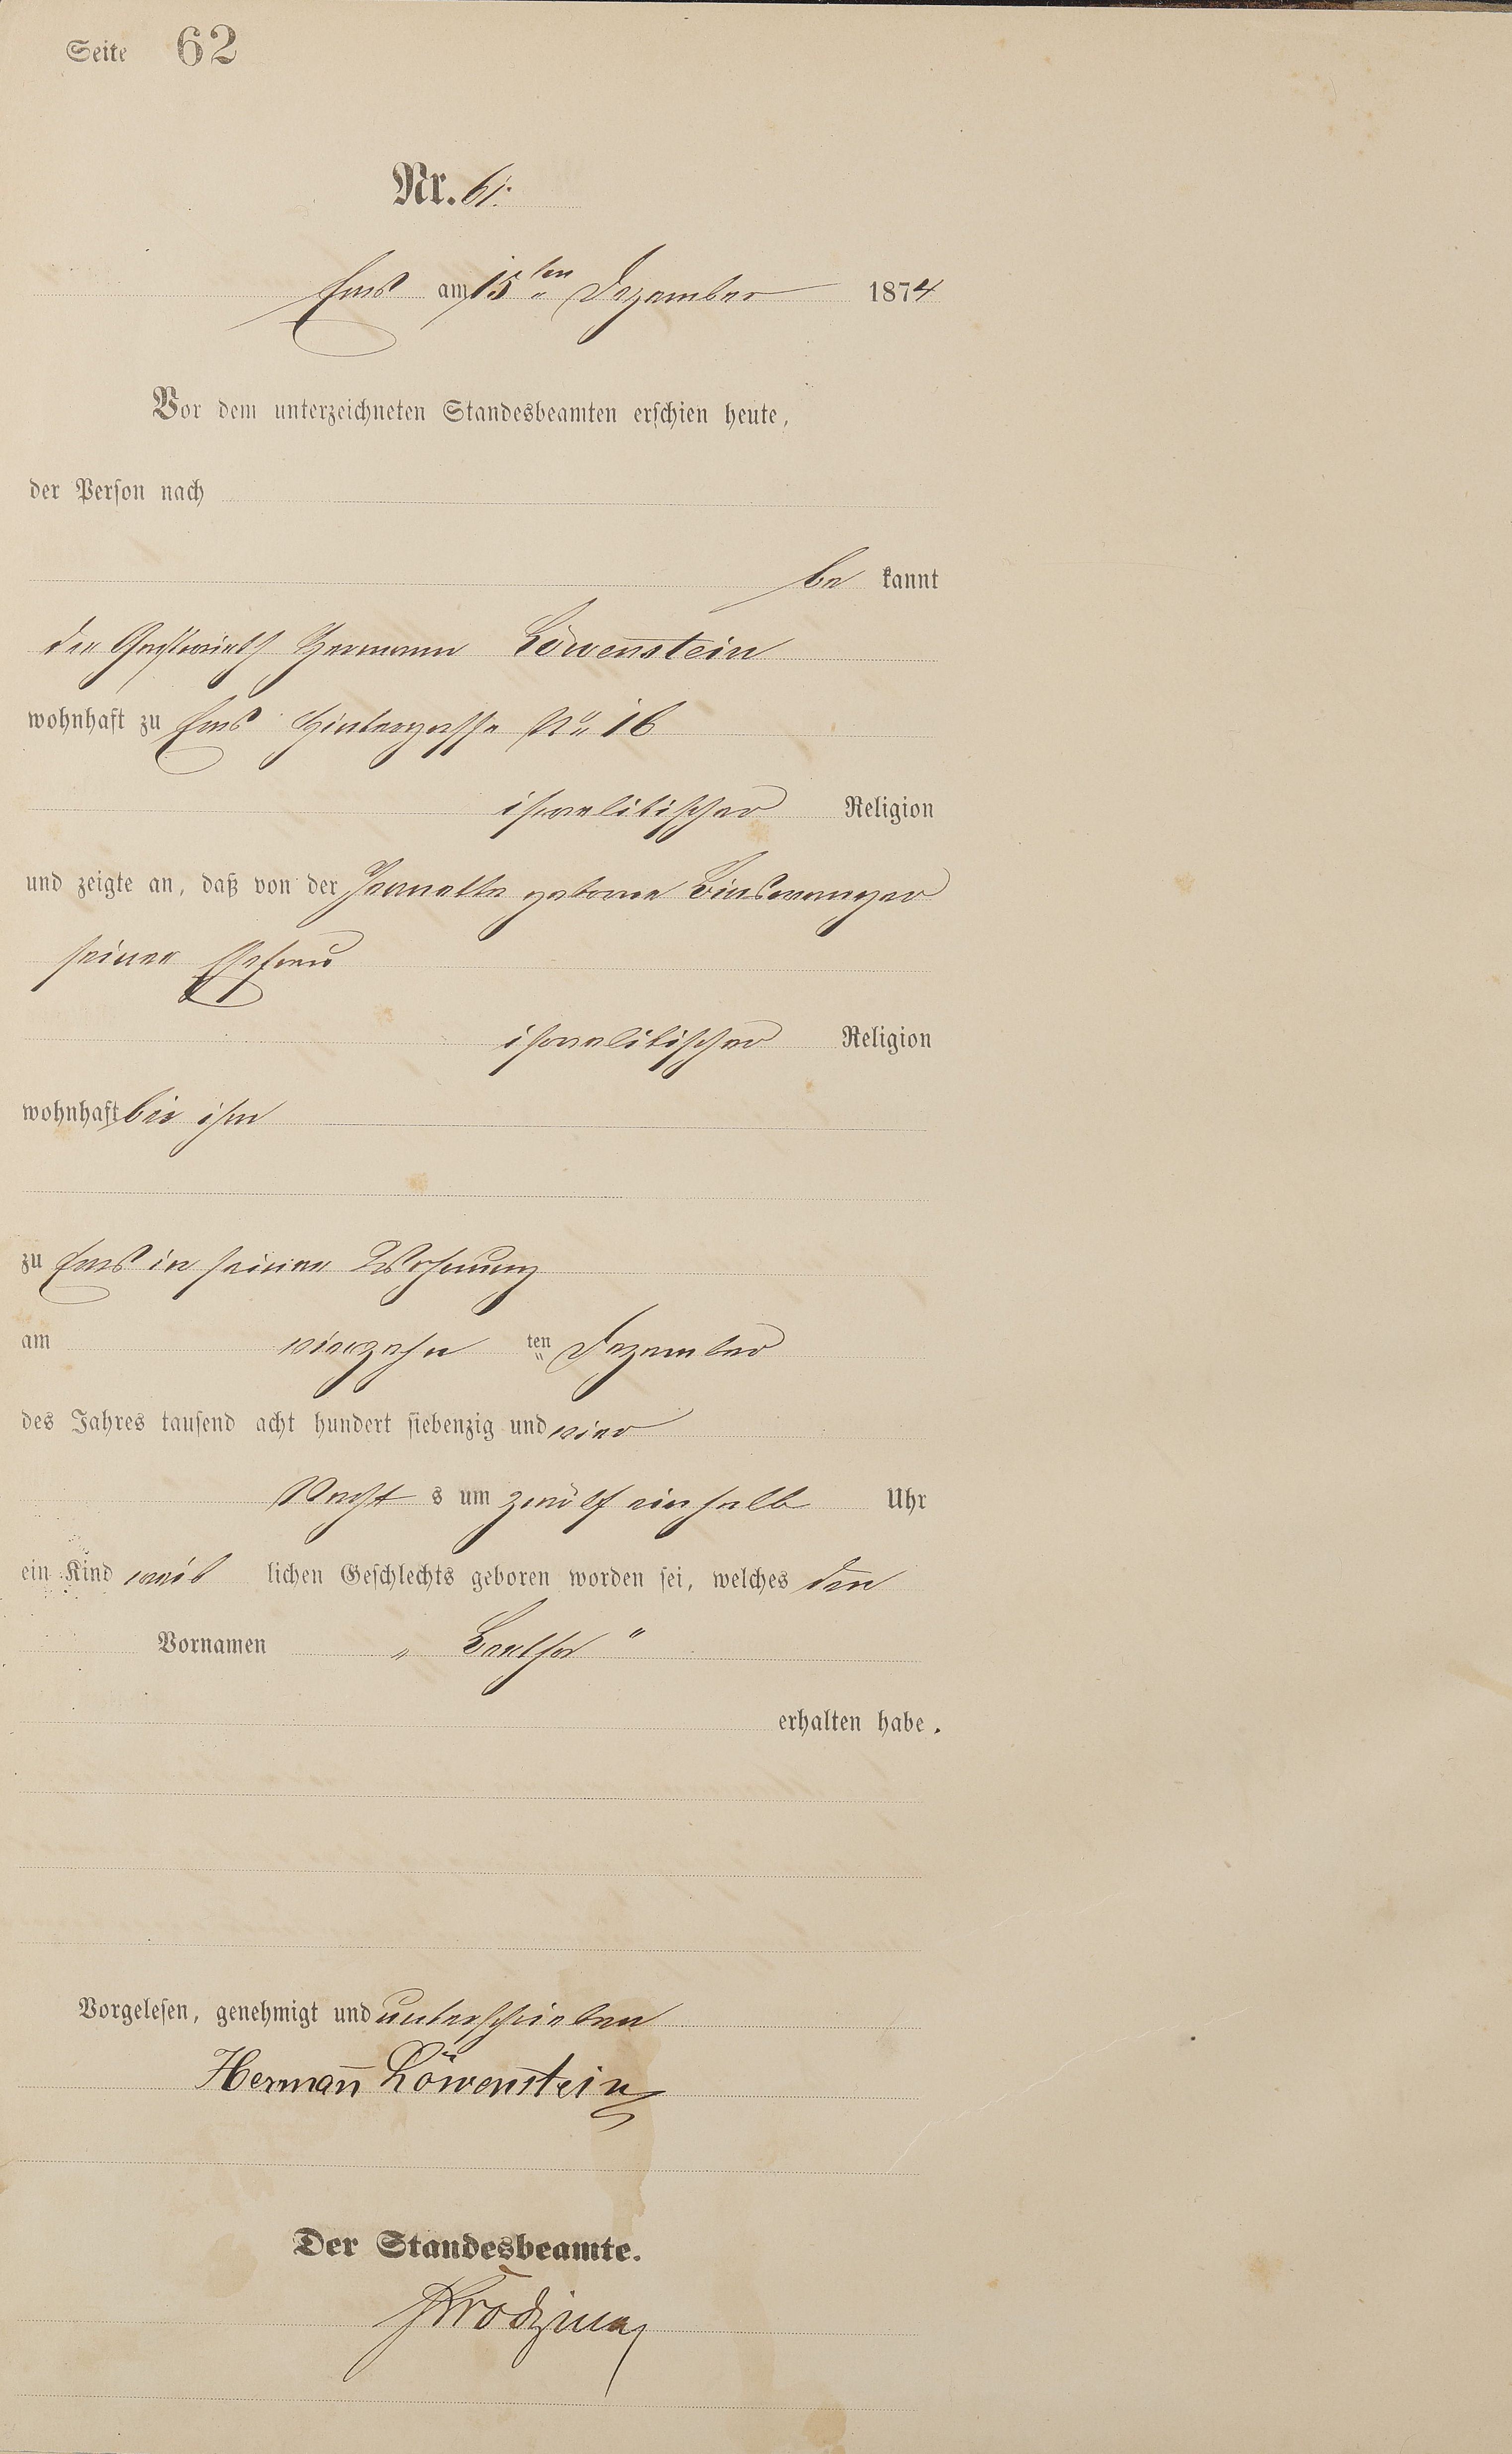 Seite 62
Nr. 61.
Ems am 15ten Dezember 1874
Vor dem unterzeichneten Standesbeamten erschien heute,
der Person nach
be kannt
der Gastwirth Hermann Löwenstein
wohnhaft zu Ems Hintergasse No 16
israelitischer Religion
und zeigte an, daß von der Jeanette geborne Binswanger
seiner Ehefrau
israelitischer Religion
wohnhaft bei ihm
zu Ems in seiner Wohnung
am vierzehn ten Dezember
des Jahres tausend acht hundert siebenzig und vier
Nacht s um zwölf einhalb Uhr
ein Kind weib lichen Geschlechts geboren worden sei, welches den
Vornamen
erhalten habe.
Vorgelesen, genehmigt und unterschrieben
Herman̄ Löwenstein
Der Standesbeamte.